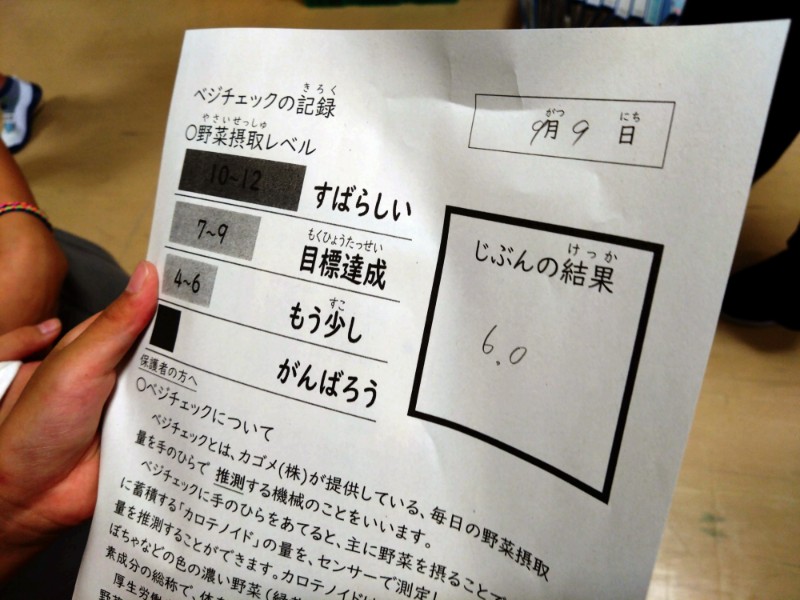 ベジチェックの記録
きろく
9月9日
がつ
にち
○野菜摂取レベル
やさいせっしゅ
10~12 すばらしい
7~9 目標達成
もくひょうたっせい
4~6 もう少し
すこ
がんばろう
じぶんの結果
けっか
6.0
保護者の方へ
○ベジチェックについて
ベジチェックとは、カゴメ(株)が提供している、毎日の野菜摂取
量を手のひらで推測する機械のことをいいます。
ベジチェックに手のひらをあてると、主に野菜を摂ることで
に蓄積する「カロテノイド」の量を、センサーで測定し
量を推測することができます。カロテノイドは
ぼちゃなどの色の濃い野菜(緑
素成分の総称で、体
厚生労働
野菜